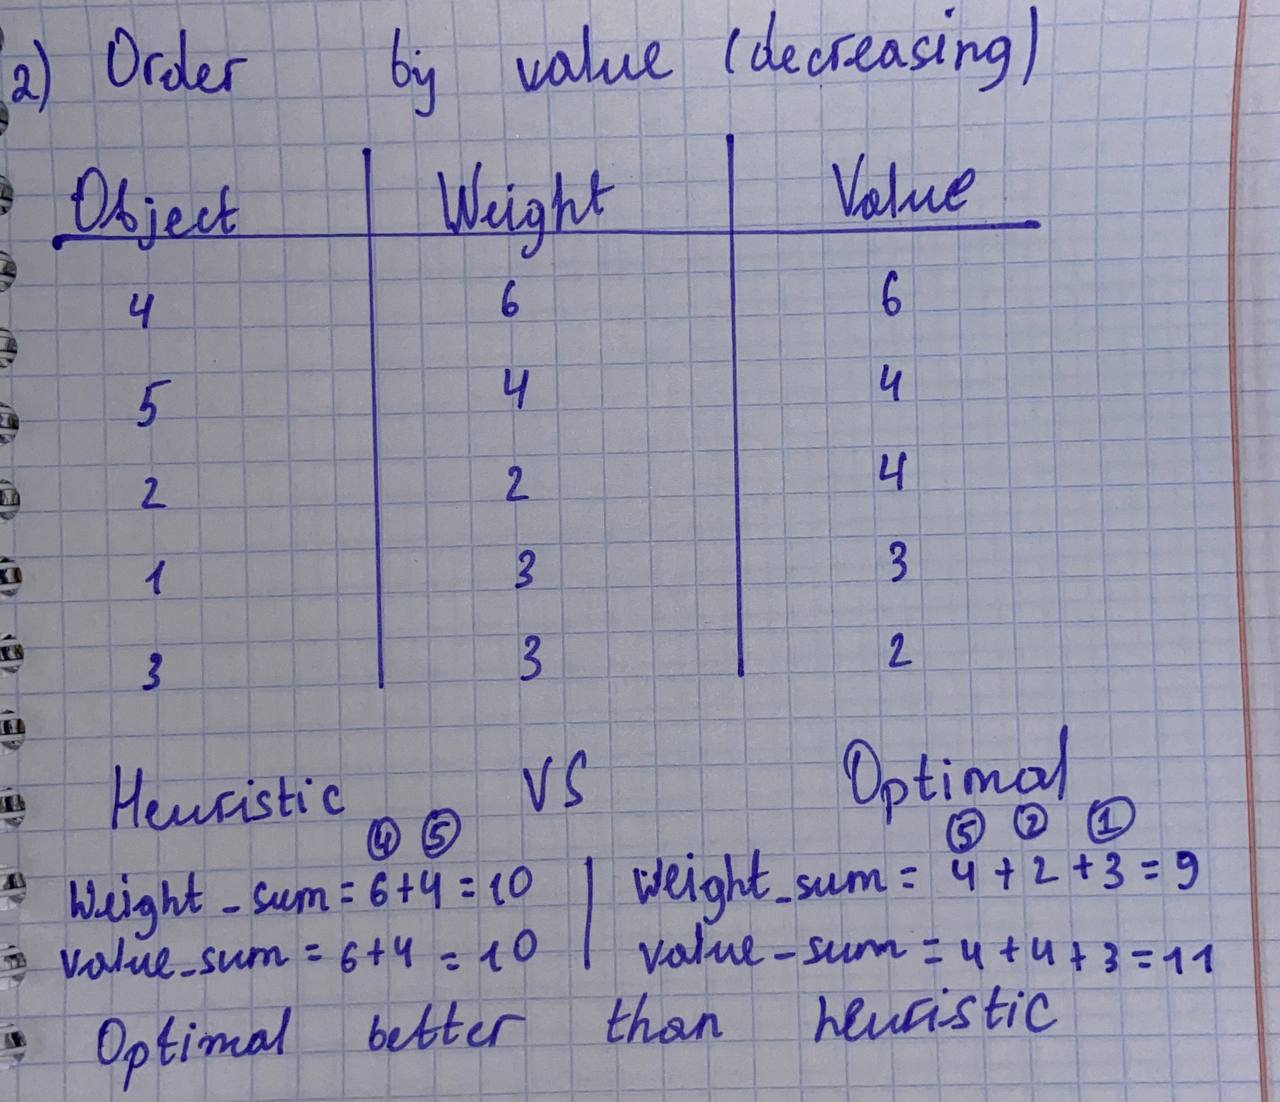 2) Order by value (decreasing)
Object Weight Value
4 6 6
5 4 4
2 2 4
1 3 3
3 3 2
Heuristic VS Optimal
④ ⑤ ⑤ ② ①
Weight_sum = 6+4 = 10 | Weight_sum = 4+2+3 = 9
value_sum = 6+4 = 10 | value_sum = 4+4+3 = 11
Optimal better than heuristic